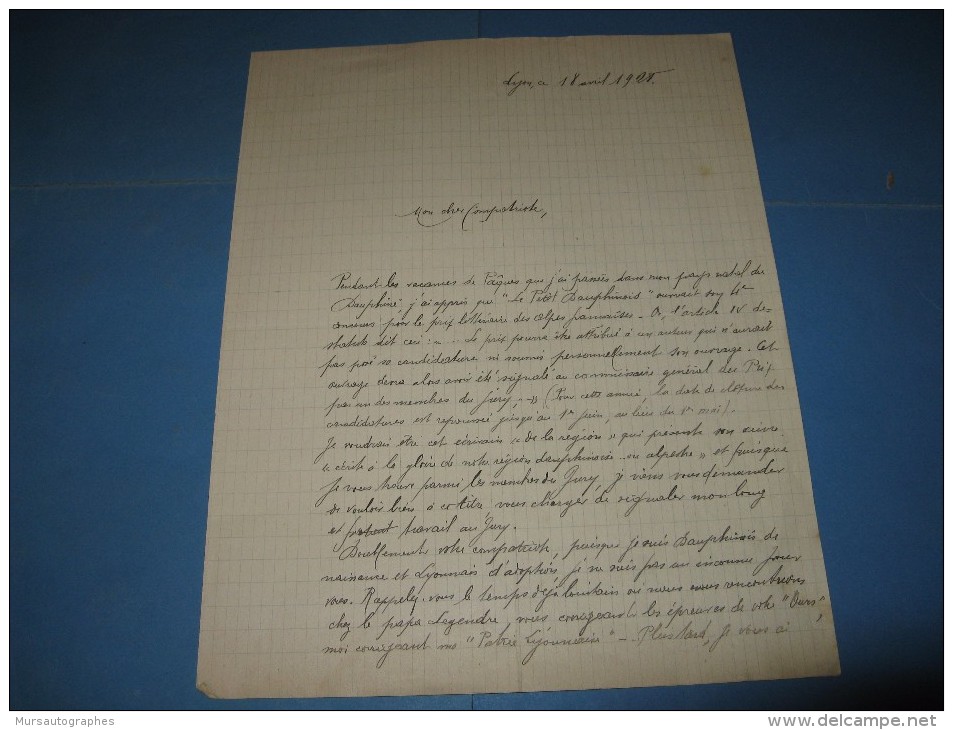 Lyon, ce 18 avril 1928.
Mon cher Compatriote,
Pendant les vacances de Pâques que j'ai passées dans mon pays natal du
Dauphiné, j'ai appris que "Le Petit Dauphinois" ouvrait son 4e
concours pour le prix littéraire des Alpes françaises. - Or, l'article IV des
statuts dit ceci : « ... Le prix pourra être attribué à un auteur qui n'aurait
pas posé sa candidature ni soumis personnellement son ouvrage. Cet
ouvrage devra alors avoir été signalé au commissaire général des Prix
par un des membres du jury, » (Pour cette année, la date de clôture des
candidatures est repoussée jusqu'au 1er juin, au lieu du 1er mai).
Je voudrais être cet écrivain « de la région » qui présente son œuvre
« écrite à la gloire de notre région dauphinoise ou alpestre » et puisque
je vous trouve parmi les membres du Jury, je viens vous demander
de vouloir bien, à ce titre, vous charger de signaler mon long
et travail au Jury.
Doublement votre compatriote, puisque je suis Dauphinois de
naissance et Lyonnais d'adoption je ne suis pas un inconnu pour
vous. Rappelez-vous le temps déjà lointain où nous nous rencontrions
chez le papa Legendre, vous corrigeant les épreuves de votre "Ours",
moi corrigeant ma "Patrie Lyonnaise" - Plus tard, je vous ai
Mursautographes
www.delcampe.net